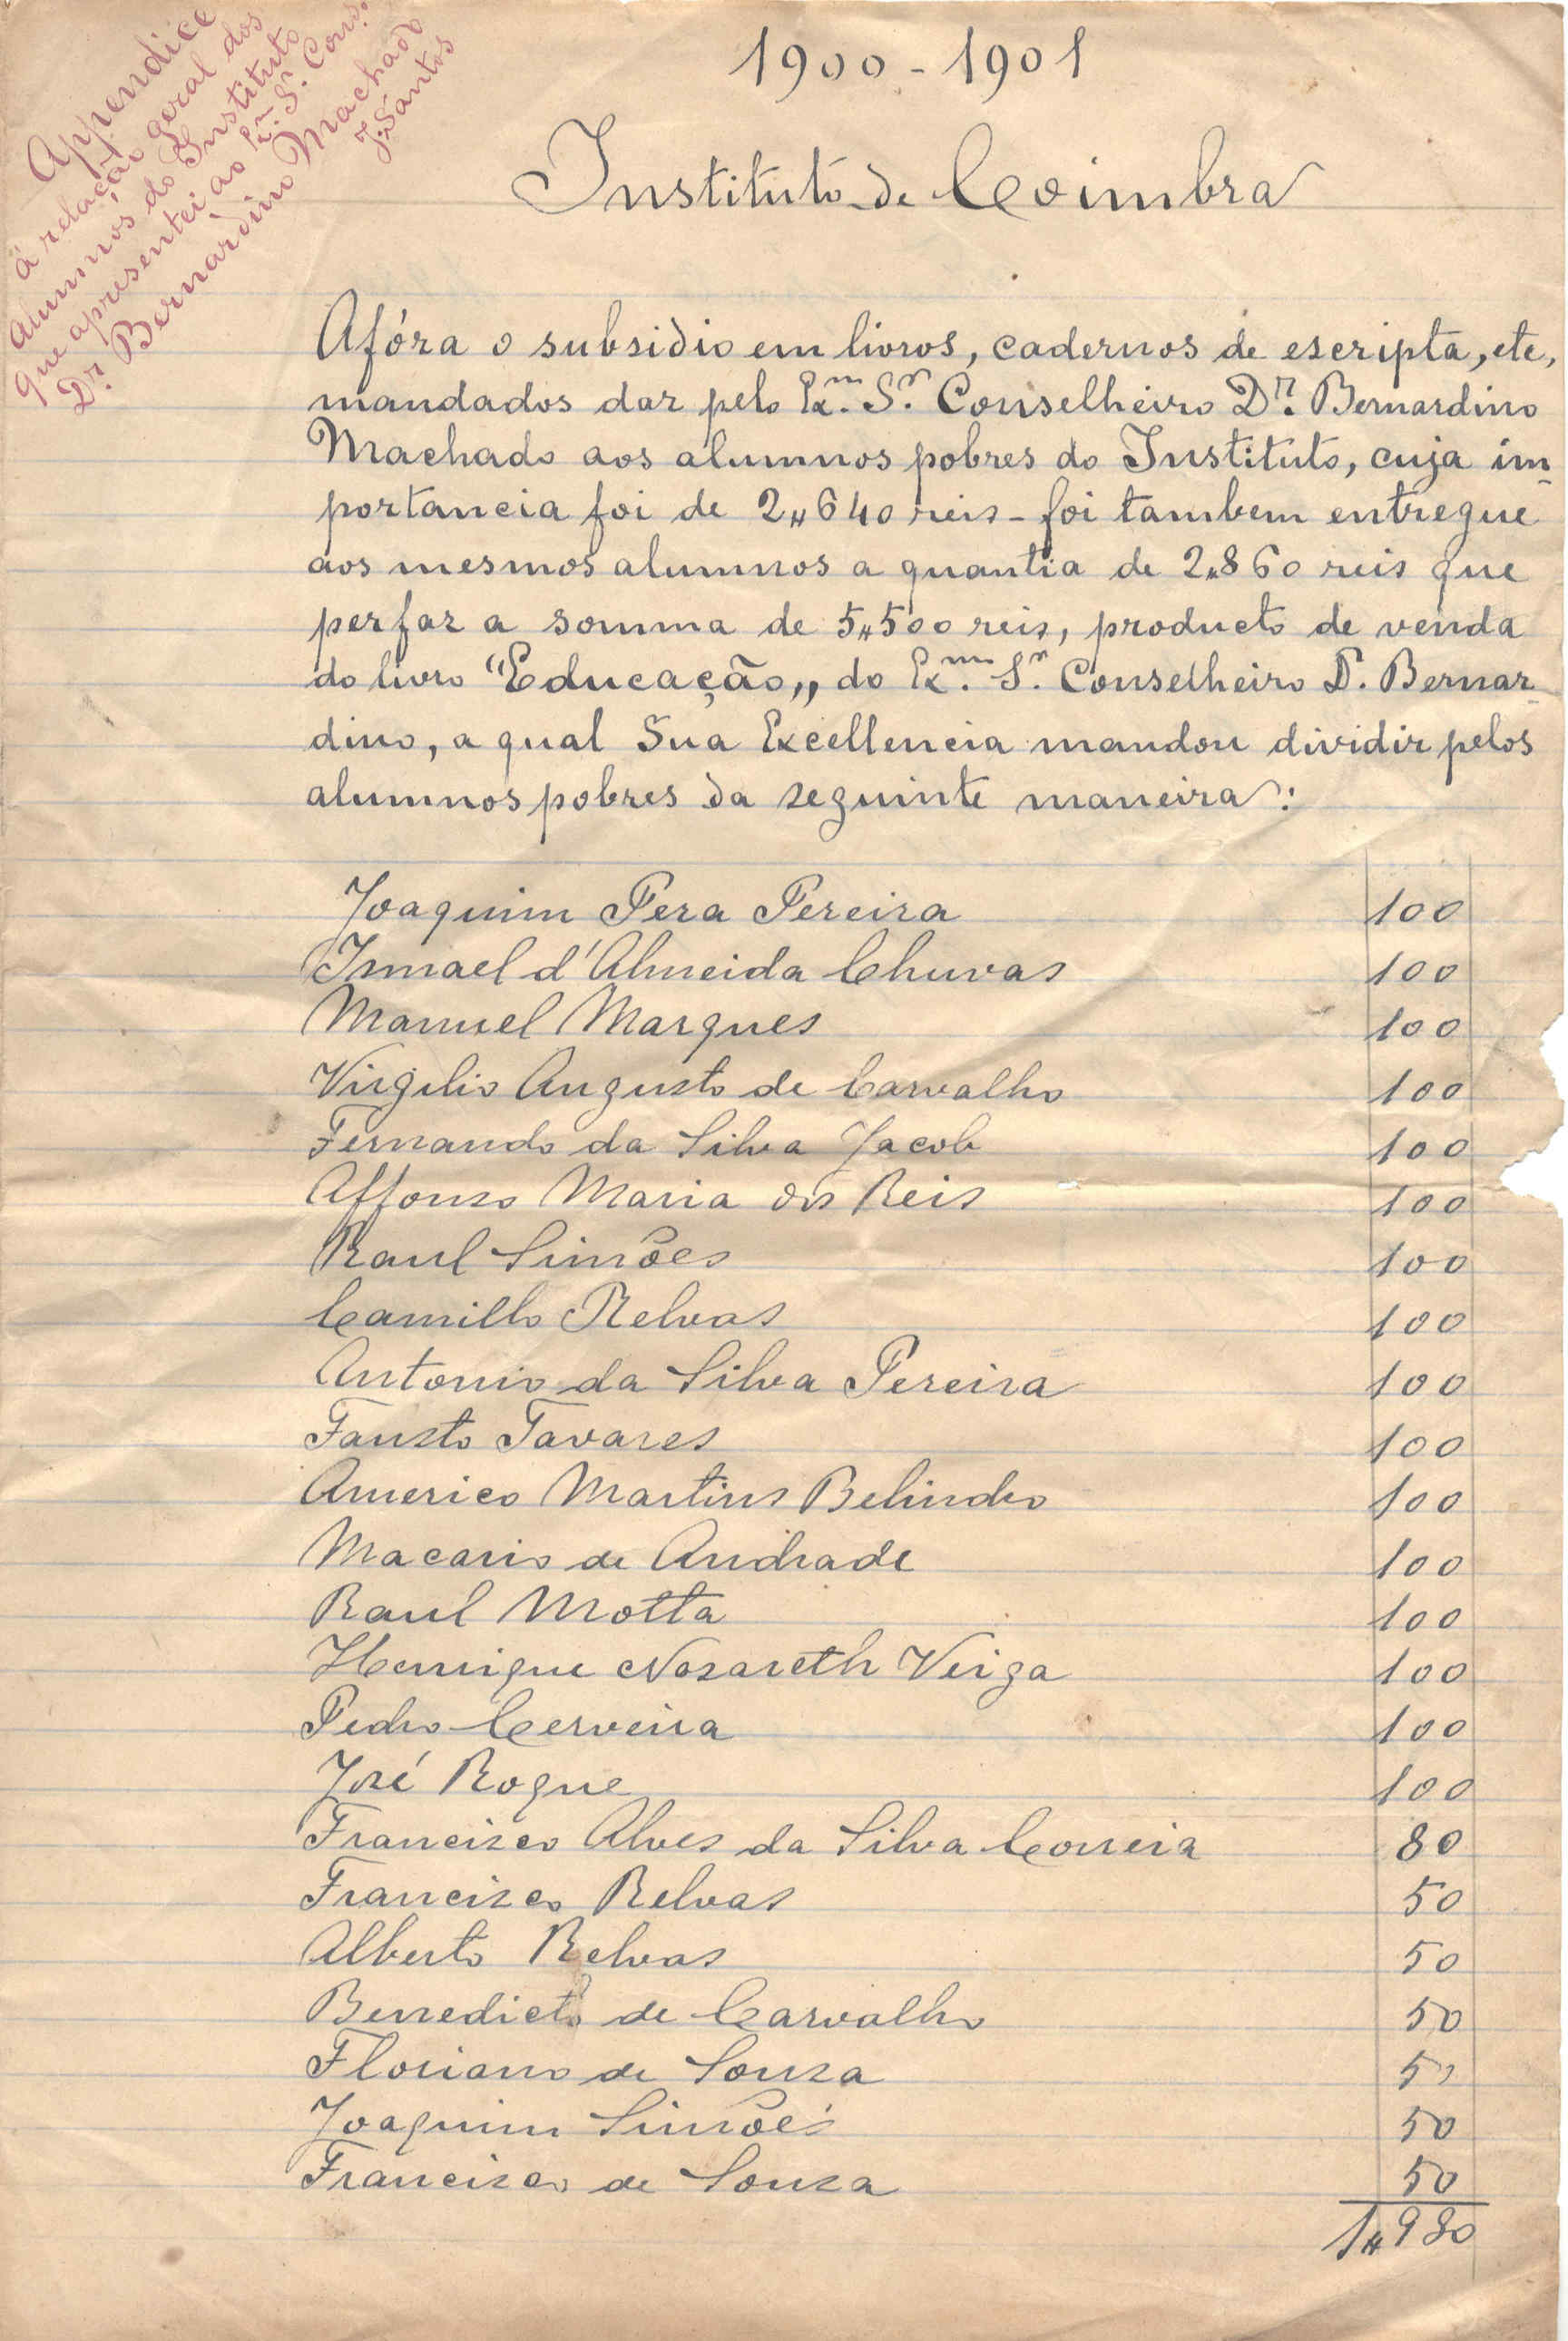 Appendice
á relação geral dos
alumnos do Instituto
que apresentei ao Ex.mo Sr. Cons.
Dr. Bernardino Machado
J. Santos
1900-1901
Instituto de Coimbra
Afóra o subsidio em livros, cadernos de escripta, etc,
mandados dar pelo Ex.m Sr. Conselheiro Dr. Bernardino
Machado aos alumnos pobres do Instituto, cuja im-
portancia foi de 2"640 reis - foi tambem entregue
aos mesmos alumnos a quantia de 2"860 reis que
perfaz a somma de 5"500 reis, producto de venda
do livro "Educação,, do Ex.m Sr. Conselheiro D. Bernar-
dino, a qual Sua Excellencia mandou dividir pelos
alumnos pobres da seguinte maneira:
Joaquim Pera Pereira 100
Ismael d'Almeida Chuvas 100
Manuel Marques 100
Virgilio Augusto de Carvalho 100
Fernando da Silva Jacob 100
Affonso Maria dos Reis 100
Raul Simões 100
Camillo Relvas 100
Antonio da Silva Pereira 100
Fausto Tavares 100
Americo Martins Belindro 100
Macario de Andrade 100
Raul Motta 100
Henrique Nazareth Veiga 100
Pedro Cerveira 100
José Roque 100
Francisco Alves da Silva Correia 80
Francisco Relvas 50
Alberto Relvas 50
Benedicto de Carvalho 50
Floriano de Souza 50
Joaquim Simões 50
Francisco de Souza 50
1"980